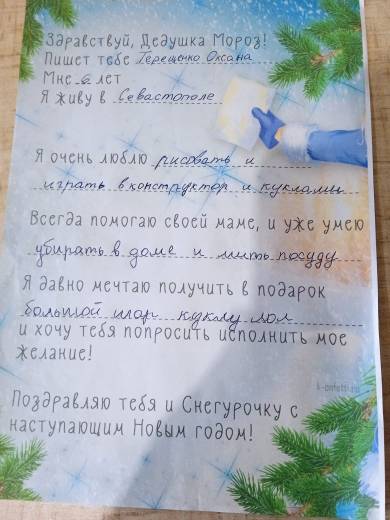 Здравствуй, Дедушка Мороз!
Пишет тебе Терещенко Оксана
Мне 6 лет
Я живу в Севастополе
Я очень люблю рисовать и
играть в конструктор и куклами
Всегда помогаю своей маме, и уже умею
убирать в доме и мить посуду
Я давно мечтаю получить в подарок
большой шар куклу лол
и хочу тебя попросить исполнить мое
желание!
Поздравляю тебя и Снегурочку с
наступающим Новым годом!